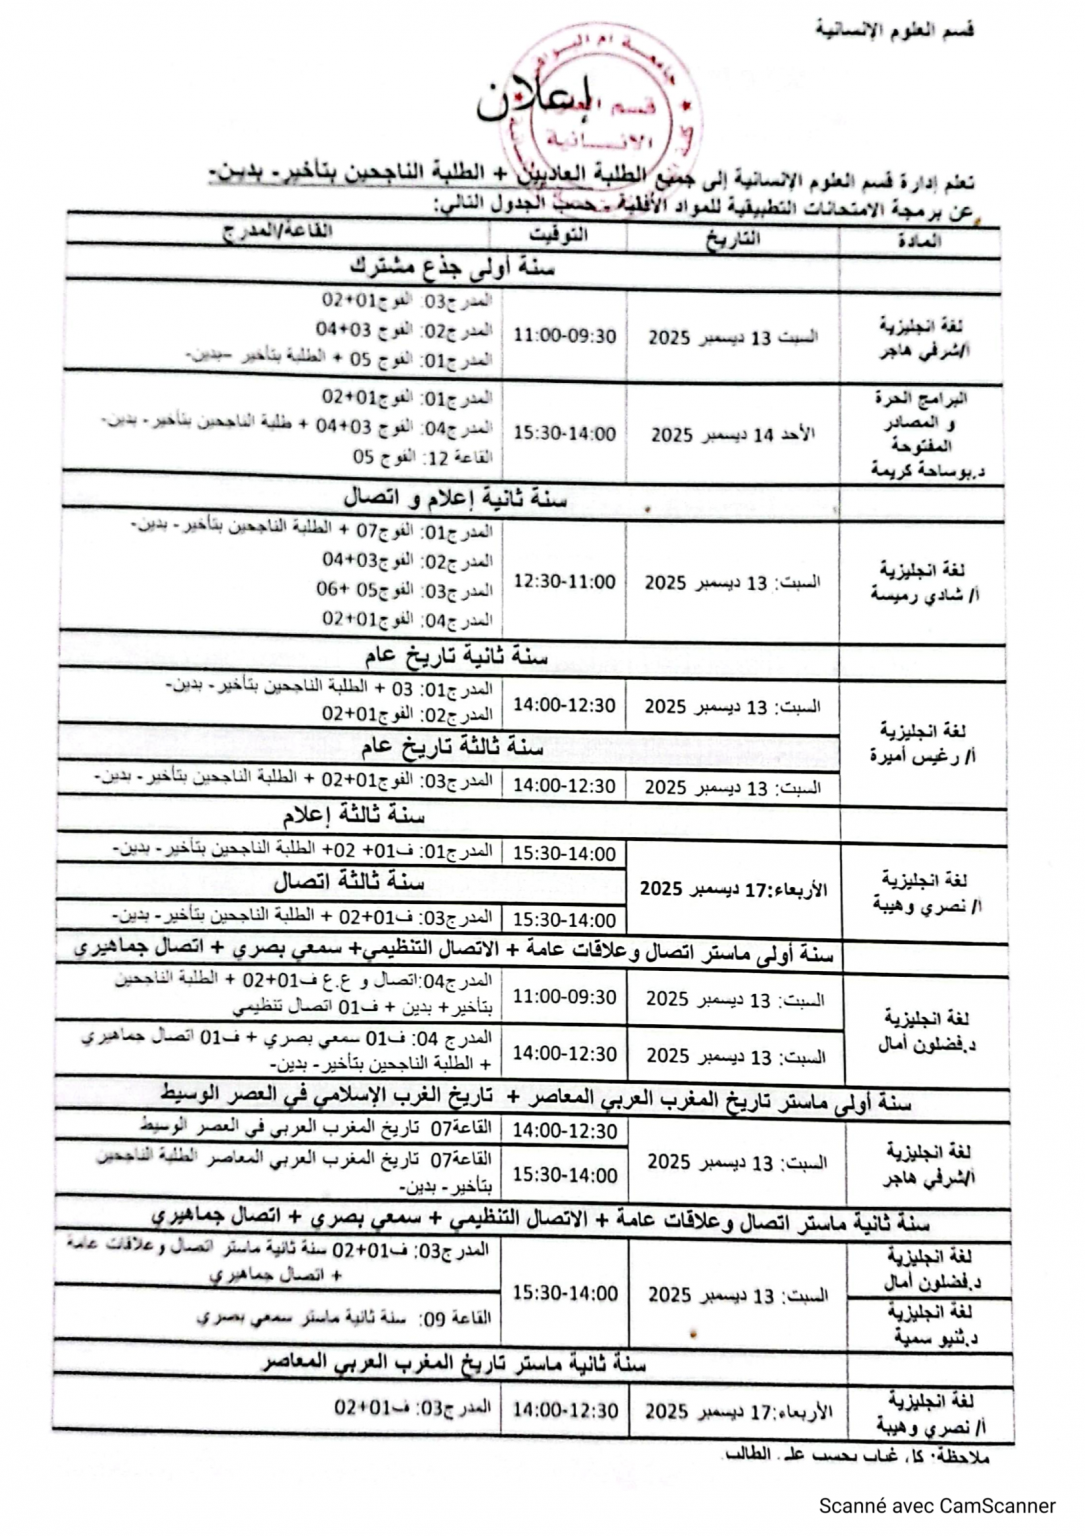 قسم العلوم الإنسانية
جامعة ام البواقي
قسم العلوم
الانسانية
إعلان
تعلم إدارة قسم العلوم الإنسانية إلى جميع الطلبة العاديين + الطلبة الناجحين بتأخير- بدين-
عن برمجة الامتحانات التطبيقية للمواد الأفقية - حسب الجدول التالي:
المادة التاريخ التوقيت القاعة/المدرج
سنة أولى جذع مشترك
لغة انجليزية
أ/شرفي هاجر
السبت 13 ديسمبر 2025
11:00-09:30
المدرج03: الفوج01+02
المدرج02: الفوج 03+04
المدرج01: الفوج 05 + الطلبة بتأخير –بدين-
البرامج الحرة
و المصادر
المفتوحة
د.بوساحة كريمة
الأحد 14 ديسمبر 2025
15:30-14:00
المدرج01: الفوج01+02
المدرج04: الفوج 03+04 + طلبة الناجحين بتأخير- بدين-
القاعة 12: الفوج 05
سنة ثانية إعلام و اتصال
لغة انجليزية
أ/ شادي رميسة
السبت: 13 ديسمبر 2025
12:30-11:00
المدرج01: الفوج07 + الطلبة الناجحين بتأخير- بدين-
المدرج02: الفوج03+04
المدرج03: الفوج05 +06
المدرج04: الفوج01+02
سنة ثانية تاريخ عام
لغة انجليزية
أ/ رغيس أميرة
السبت: 13 ديسمبر 2025
14:00-12:30
المدرج01: 03 + الطلبة الناجحين بتأخير- بدين-
المدرج02: الفوج01+02
سنة ثالثة تاريخ عام
السبت: 13 ديسمبر 2025
14:00-12:30
المدرج03: الفوج01+02 + الطلبة الناجحين بتأخير- بدين-
سنة ثالثة إعلام
لغة انجليزية
أ/ نصري وهيبة
الأربعاء:17 ديسمبر 2025
15:30-14:00
المدرج01: ف01+ 02+ الطلبة الناجحين بتأخير- بدين-
سنة ثالثة اتصال
15:30-14:00
المدرج03: ف01+02 + الطلبة الناجحين بتأخير- بدين-
سنة أولى ماستر اتصال وعلاقات عامة + الاتصال التنظيمي+ سمعي بصري + اتصال جماهيري
لغة انجليزية
د.فضلون أمال
السبت: 13 ديسمبر 2025
11:00-09:30
المدرج04:اتصال و ع.ع ف01+02 + الطلبة الناجحين
بتأخير+ بدين + ف01 اتصال تنظيمي
السبت: 13 ديسمبر 2025
14:00-12:30
المدرج 04: ف01 سمعي بصري + ف01 اتصال جماهيري
+ الطلبة الناجحين بتأخير- بدين-
سنة أولى ماستر تاريخ المغرب العربي المعاصر + تاريخ الغرب الإسلامي في العصر الوسيط
لغة انجليزية
أ/شرفي هاجر
السبت: 13 ديسمبر 2025
14:00-12:30
القاعة07 تاريخ المغرب العربي في العصر الوسيط
15:30-14:00
القاعة07 تاريخ المغرب العربي المعاصر الطلبة الناجحين
بتأخير - بدين-
سنة ثانية ماستر اتصال وعلاقات عامة + الاتصال التنظيمي + سمعي بصري + اتصال جماهيري
لغة انجليزية
د.فضلون أمال
لغة انجليزية
د.ثنيو سمية
السبت: 13 ديسمبر 2025
15:30-14:00
المدرج03: ف01+02 سنة ثانية ماستر اتصال وعلاقات عامة
+ اتصال جماهيري
القاعة 09: سنة ثانية ماستر سمعي بصري
سنة ثانية ماستر تاريخ المغرب العربي المعاصر
لغة انجليزية
أ/ نصري وهيبة
الأربعاء:17 ديسمبر 2025
14:00-12:30
المدرج03: ف01+02
ملاحظة: كل غياب يحسب على الطالب.
Scanné avec CamScanner